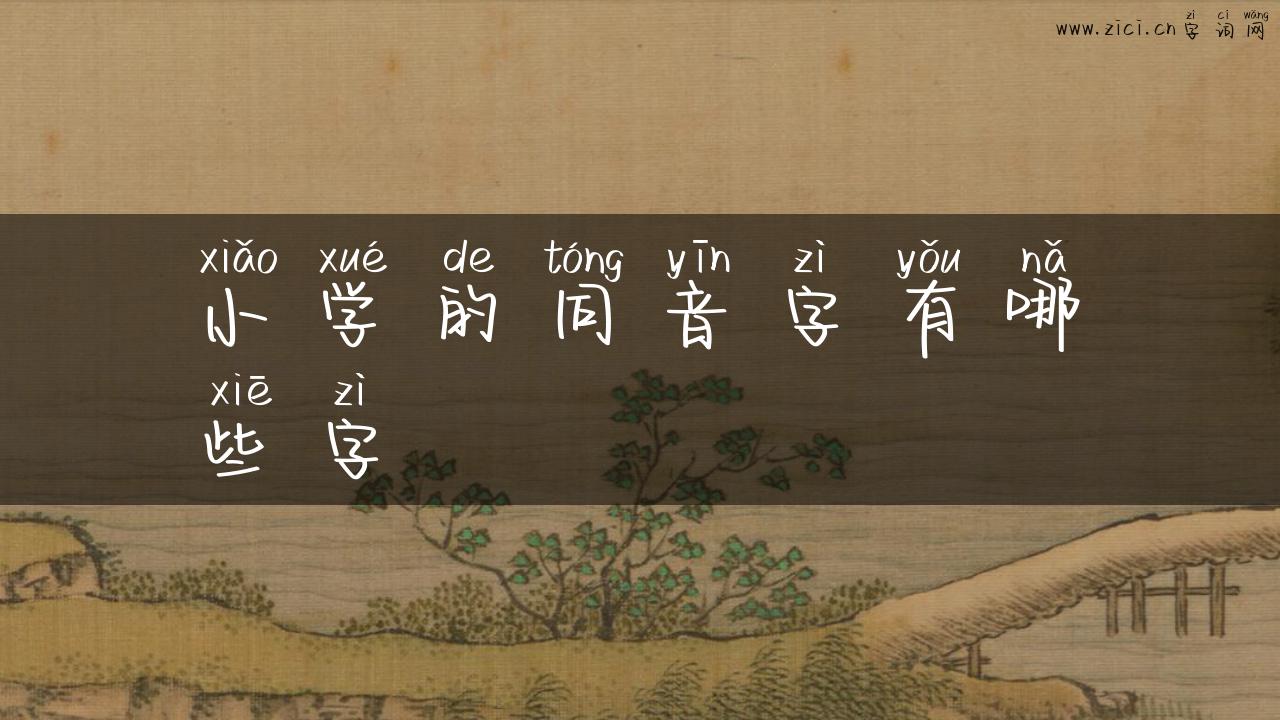 zì cí wǎng
www.zici.cn 字词网
xiǎo xué de tóng yīn zì yǒu nǎ
小学的同音字有哪
xiē zì
些字